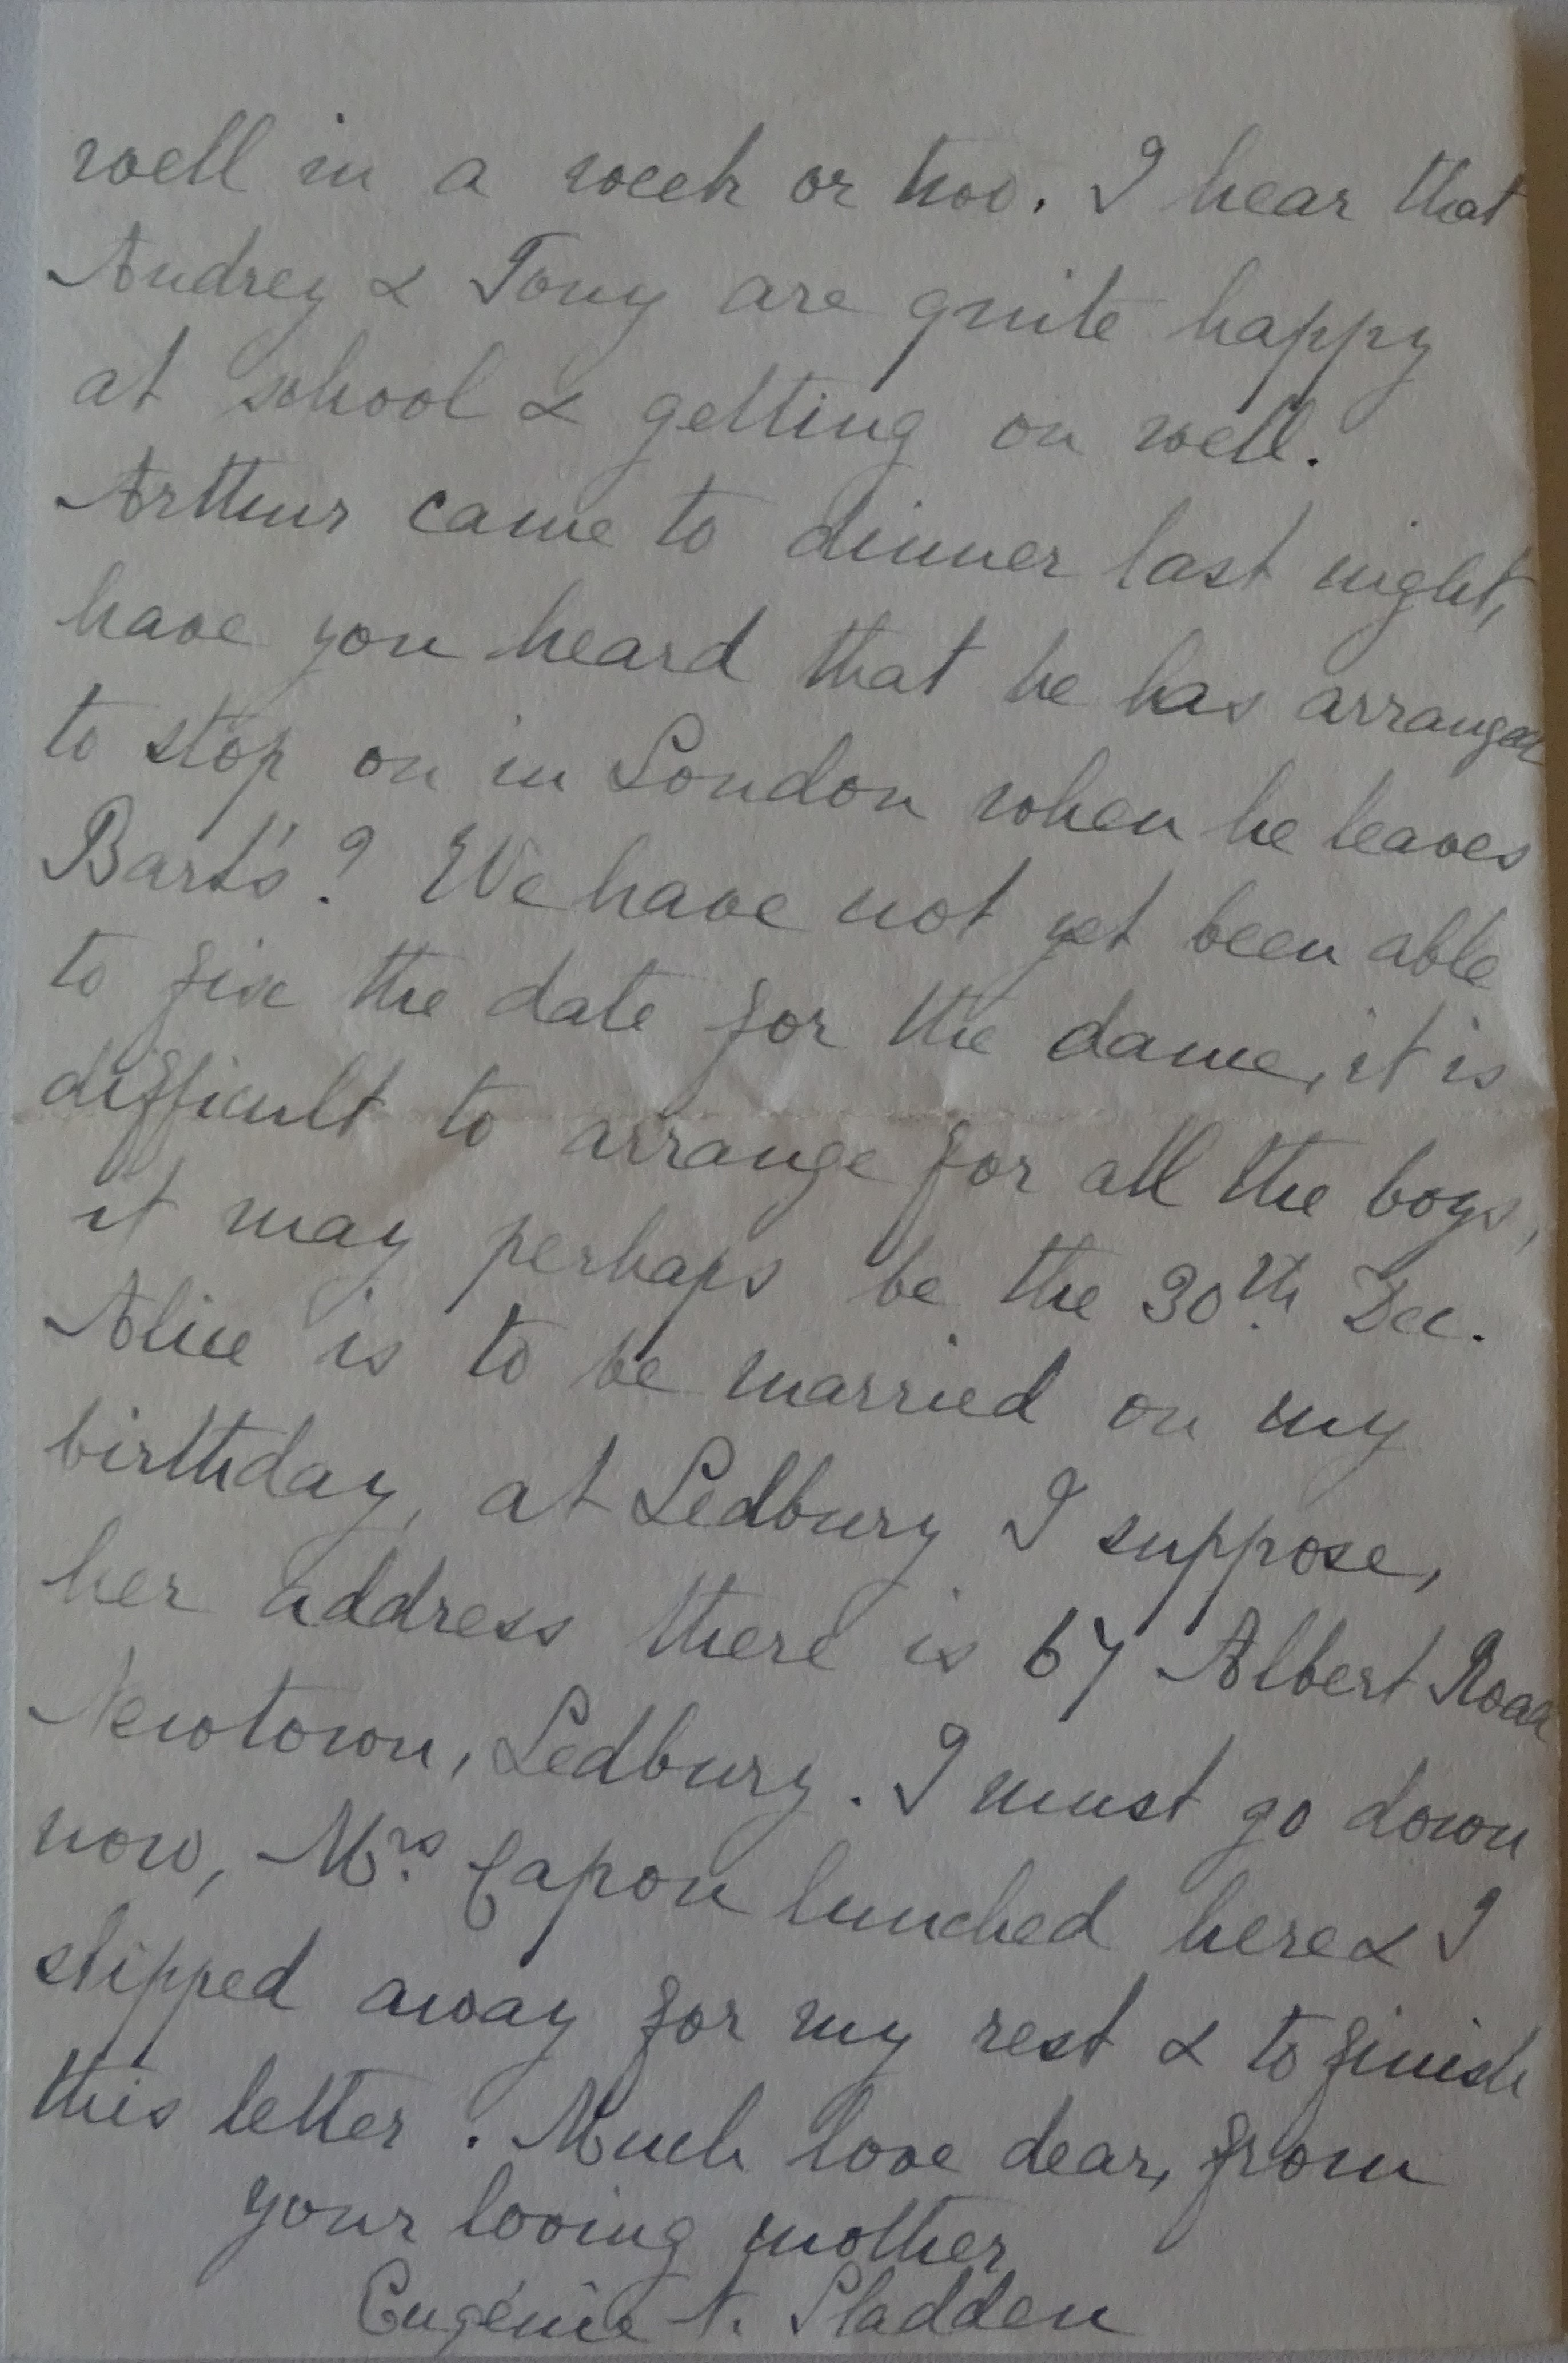 well in a week or two. I hear that
Audrey & Tony are quite happy
at school & getting on well.
Arthur came to dinner last night,
have you heard that he has arranged
to stop on in London when he leaves
Bart's? We have not yet been able
to fix the date for the dance, it is
difficult to arrange for all the boys,
it may perhaps be the 30th Dec.
Alice is to be married on my
birthday, at Ledbury I suppose,
her address there is 67 Albert Road
Newtown, Ledbury. I must go down
now, Mrs. Capon lunched here & I
slipped away for my rest & to finish
this letter. Much love dear, from
your loving mother
Eugénie N. Sladden